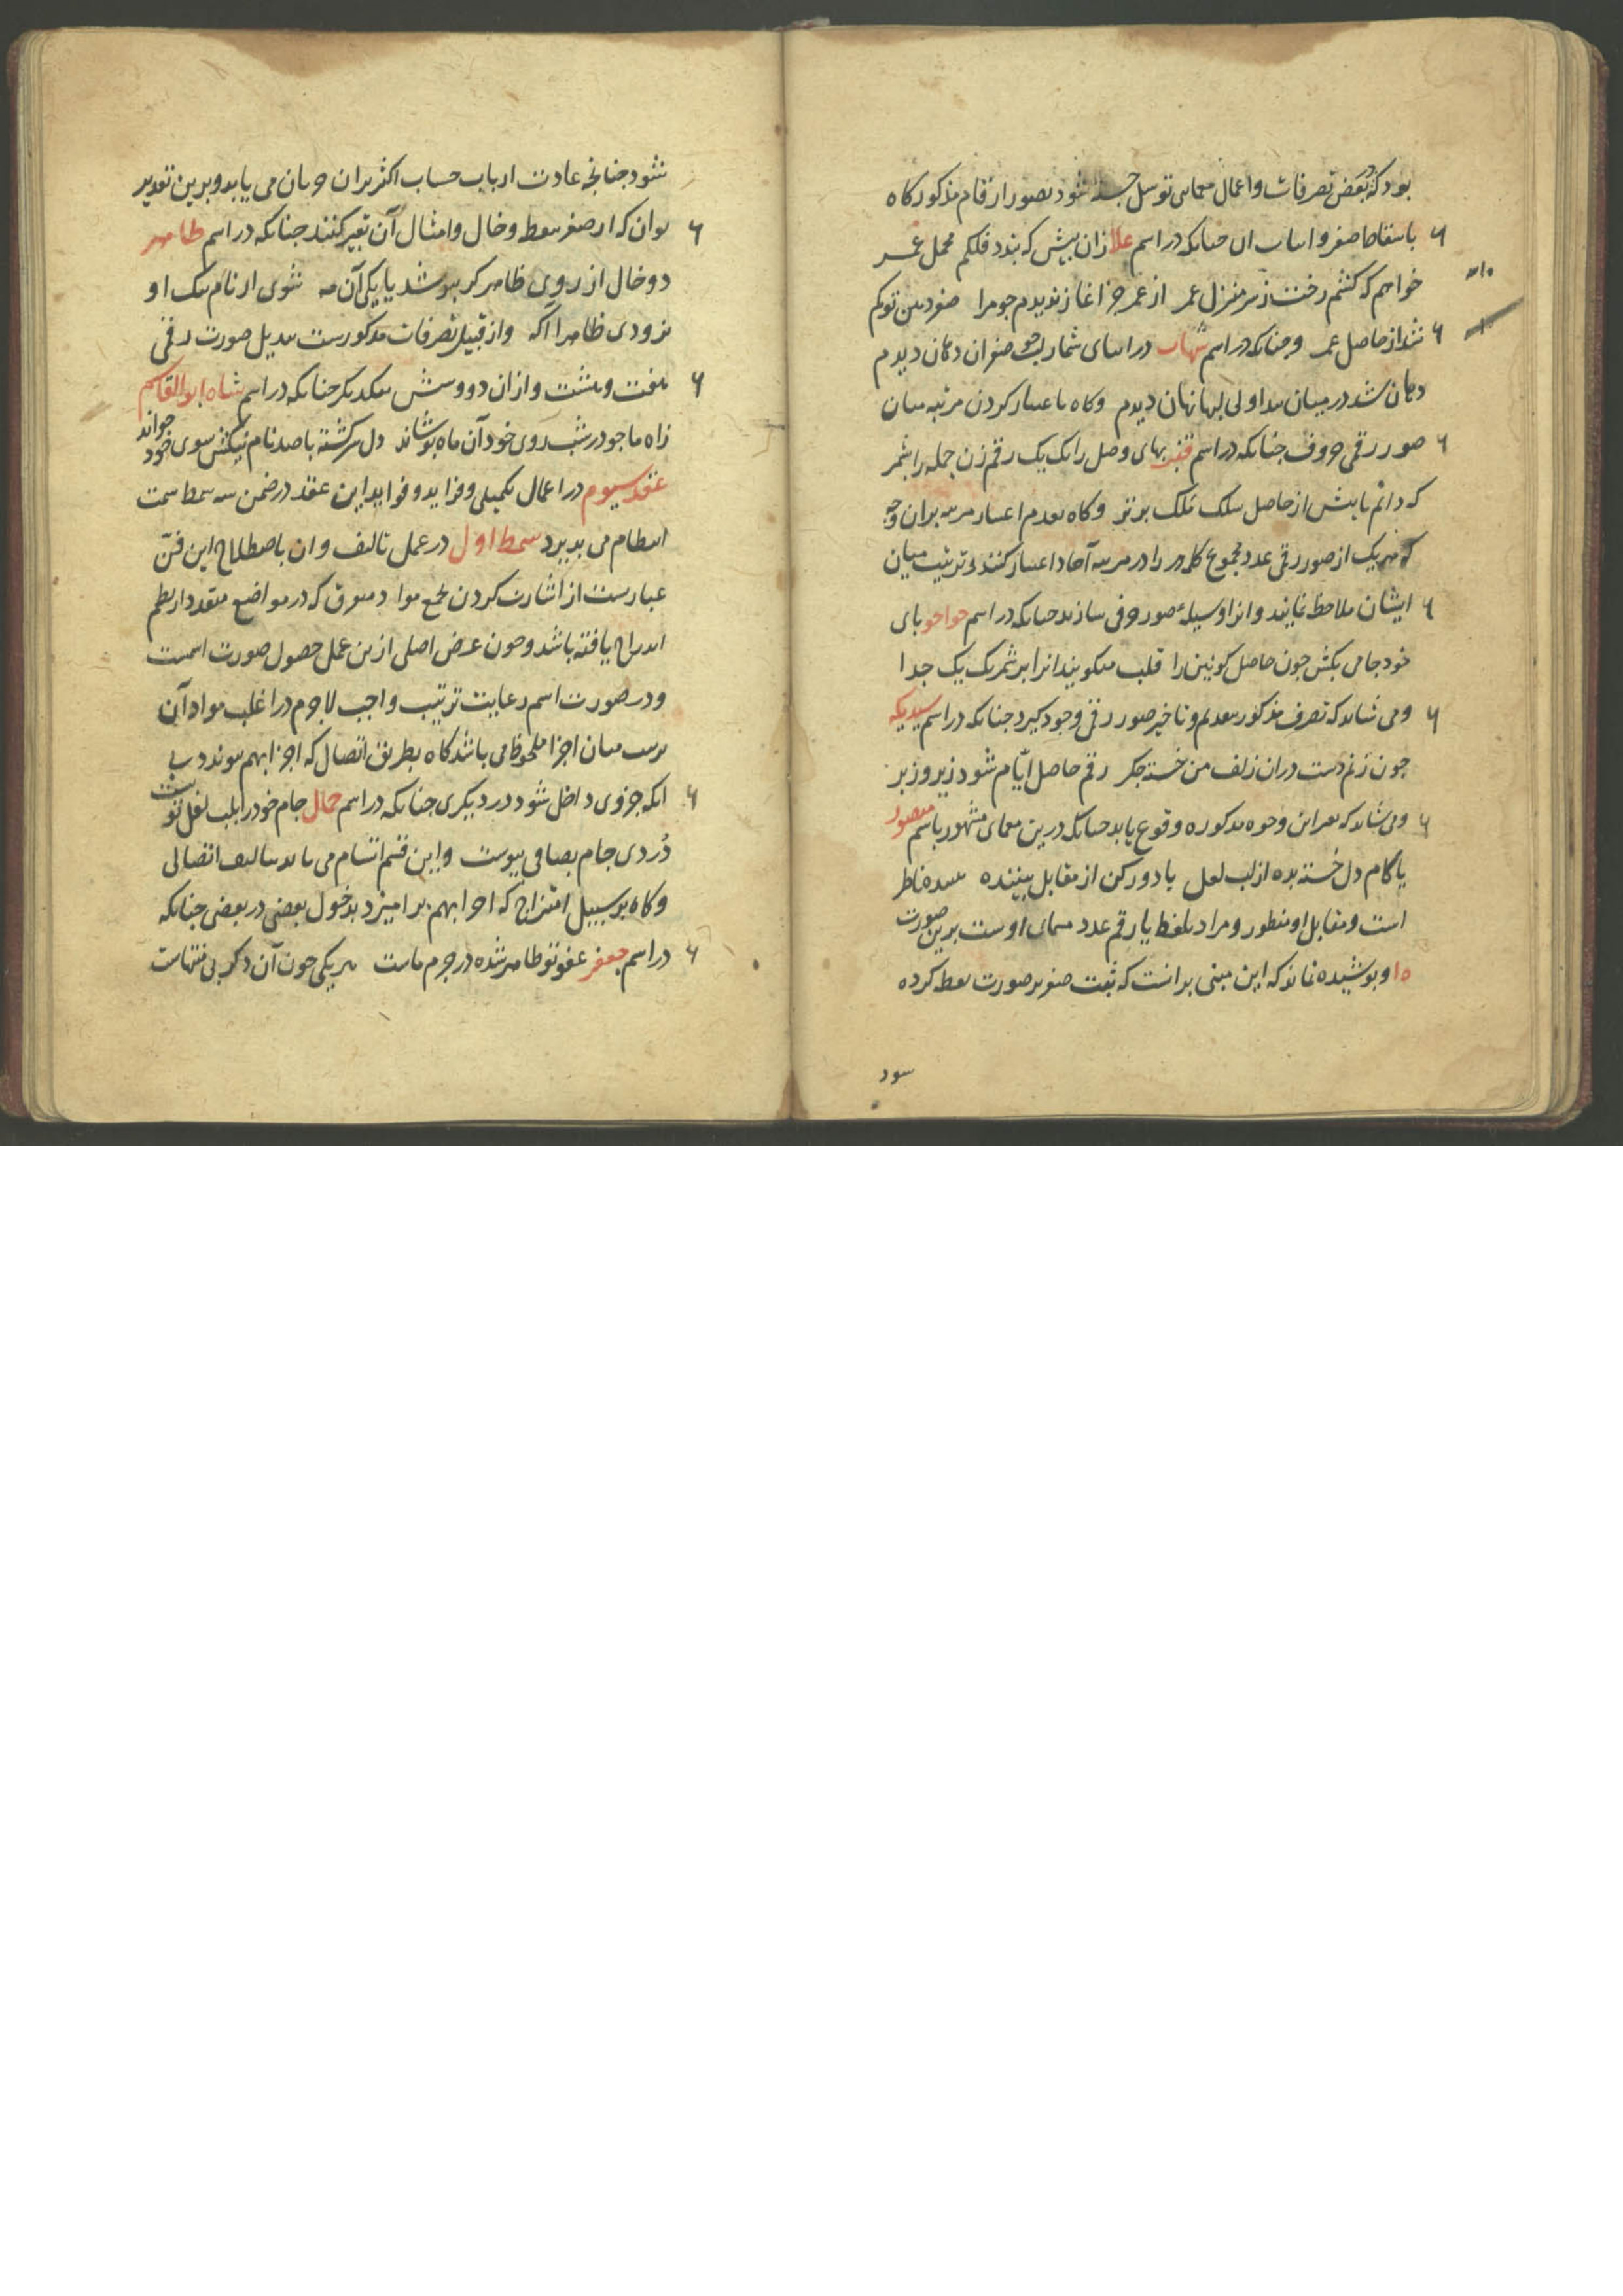 بود که بعض تصرفات و اعمال معمایی توسل جسته شود بصور ارقام مذکور کاه
باسقاط صفر و اثبات آن چنانکه در اسم علا زان پیش که بندد فلکم محمل عمر
خواهم که کشم رخت ز سر منزل عمر از عمر جز اغاز ندیدم جو مرا صفر
شد از حاصل عمر و چنانکه در اسم شهاب در اثنای شمار صفر آن دهان دیدم
دهان شد در میان بداولی لبها نهان دیدم و کاه باعتبار کردن مرتبه میان
صور رقمی حروف چنانکه در اسم بهای وصل را یک یک رقم زن جمله را بشمر
که دانم بایش از حاصل ملک فلک برتر و کاه بعدم اعتبار مرتبه بران وجه
که هر یک از صور رقمی عدد مجموع کلمه را در مرتبه آحاد اعتبار کنند و ترتیب میان
ایشان ملاحظه نمایند و انرا وسیله صور حرفی سازند چنانکه در اسم خواجو بای
خود جامی بکش جون حاصل کونین را قلب میکویند انرا برشمر یک یک جدا
و می شاید که تصرف مذکور بتقدیم و تاخیر صور رقمی وجود کیرد چنانکه در اسم سیدیکه
جون زنم دست دران زلف من خسته جکر رقم حاصل ایام شود زیر و زبر
و می شاید که بغیر این وجوه مذکوره وقوع یابد چنانکه درین معمای مشهور باسم منصور
یا کام دل خسته بده از لب لعل یا دور کن از مقابل بیننده ناظر
است و مقابل او منظور و مراد بلفظ یا رقم عدد مسمای اوست برین صورت
۱۵ و پوشیده نماند که این مبنی برانست که ثبت صفر بر صورت نقطه کرده
شود
شود جنانجه عادت ارباب حساب اکثر بران جریان می یابد و برین تقدیر
توان که از صفر بنقطه و خال و امثال آن تعبیر کنند جنانکه در اسم طاهر
دو خال از روی ظاهر کر بپوشد یا یکی آن مه شوی از نام نیک او
بزودی ظاهرا آکه و از قبیل تصرفات مذکورست تبدیل صورت رقمی
هفت و هشت و ازان دو و شش بیکدیکر جنانکه در اسم شاه ابوالقاسم
زاه ما جو در شب روی خود آن ماه بوشاند دل سرکشته با صد نام نیکش سوی خود خواند
عقد سیوم در اعمال تکمیلی و فراید و فواید این عقد در ضمن سه سمط سمت
انتظام می پذیرد سمط اول در عمل تالیف و ان باصطلاح این فن
عبارتست از اشارت کردن بجمع مواد متفرق که در مواضع متعدد از نظم
اندراج یافته باشد و جون غرض اصلی ازین عمل حصول صورت اسمست
و در صورت اسم رعایت ترتیب واجب لاجرم در اغلب مواد آن
ترتیب میان اجزا ملحوظ می باشد کاه بطریق اتصال که اجزا بهم پیوندد بی
انکه جزوی داخل شود در دیکری جنانکه در اسم جمال جام خود را بلب لعل تو
دُردی جام بصافی پیوست و این قسم اتسام می یابد بتالیف اتصالی
و کاه بر سبیل امتزاج که اجزا بهم برامیزد بدخول بعضی در بعضی جنانکه
در اسم جعفر عفو تو ظاهر شده در جرم ماست هر یکی جون آن دکر بی منتهاست